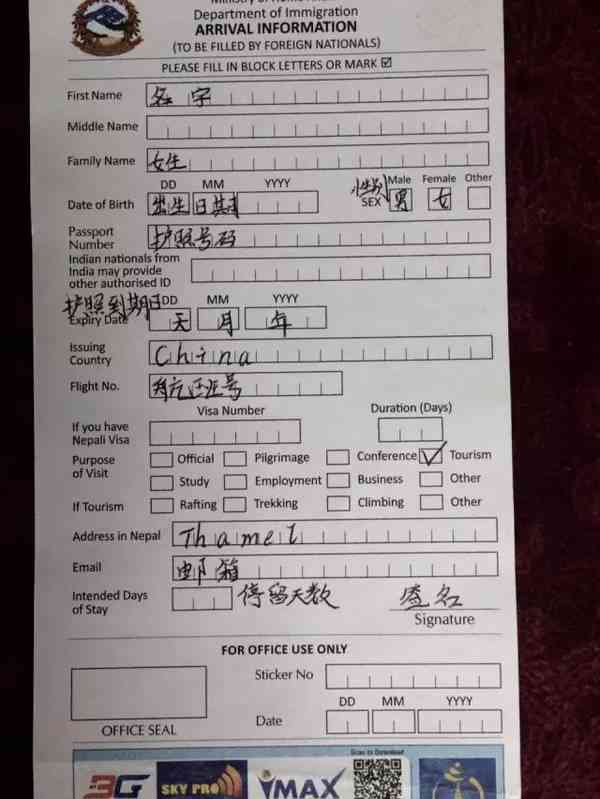 Department of Immigration
ARRIVAL INFORMATION
(TO BE FILLED BY FOREIGN NATIONALS)
PLEASE FILL IN BLOCK LETTERS OR MARK ☑
First Name 名字
Middle Name
Family Name 女生
DD MM YYYY 性别 Male Female Other
Date of Birth 出生日期 SEX 男 女
Passport Number 护照号码
Indian nationals from
India may provide
other authorised ID
护照到期日 DD MM YYYY
Expiry Date 天 月 年
Issuing Country China
Flight No. 号
Visa Number Duration (Days)
If you have
Nepali Visa
Purpose of Visit Official Pilgrimage Conference ✓ Tourism
Study Employment Business Other
If Tourism Rafting Trekking Climbing Other
Address in Nepal Thamel
Email 邮箱
Intended Days of Stay 停留天数 签名
Signature
FOR OFFICE USE ONLY
Sticker No
DD MM YYYY
OFFICE SEAL Date
Scan to Download
3G SKY PRO iMAX